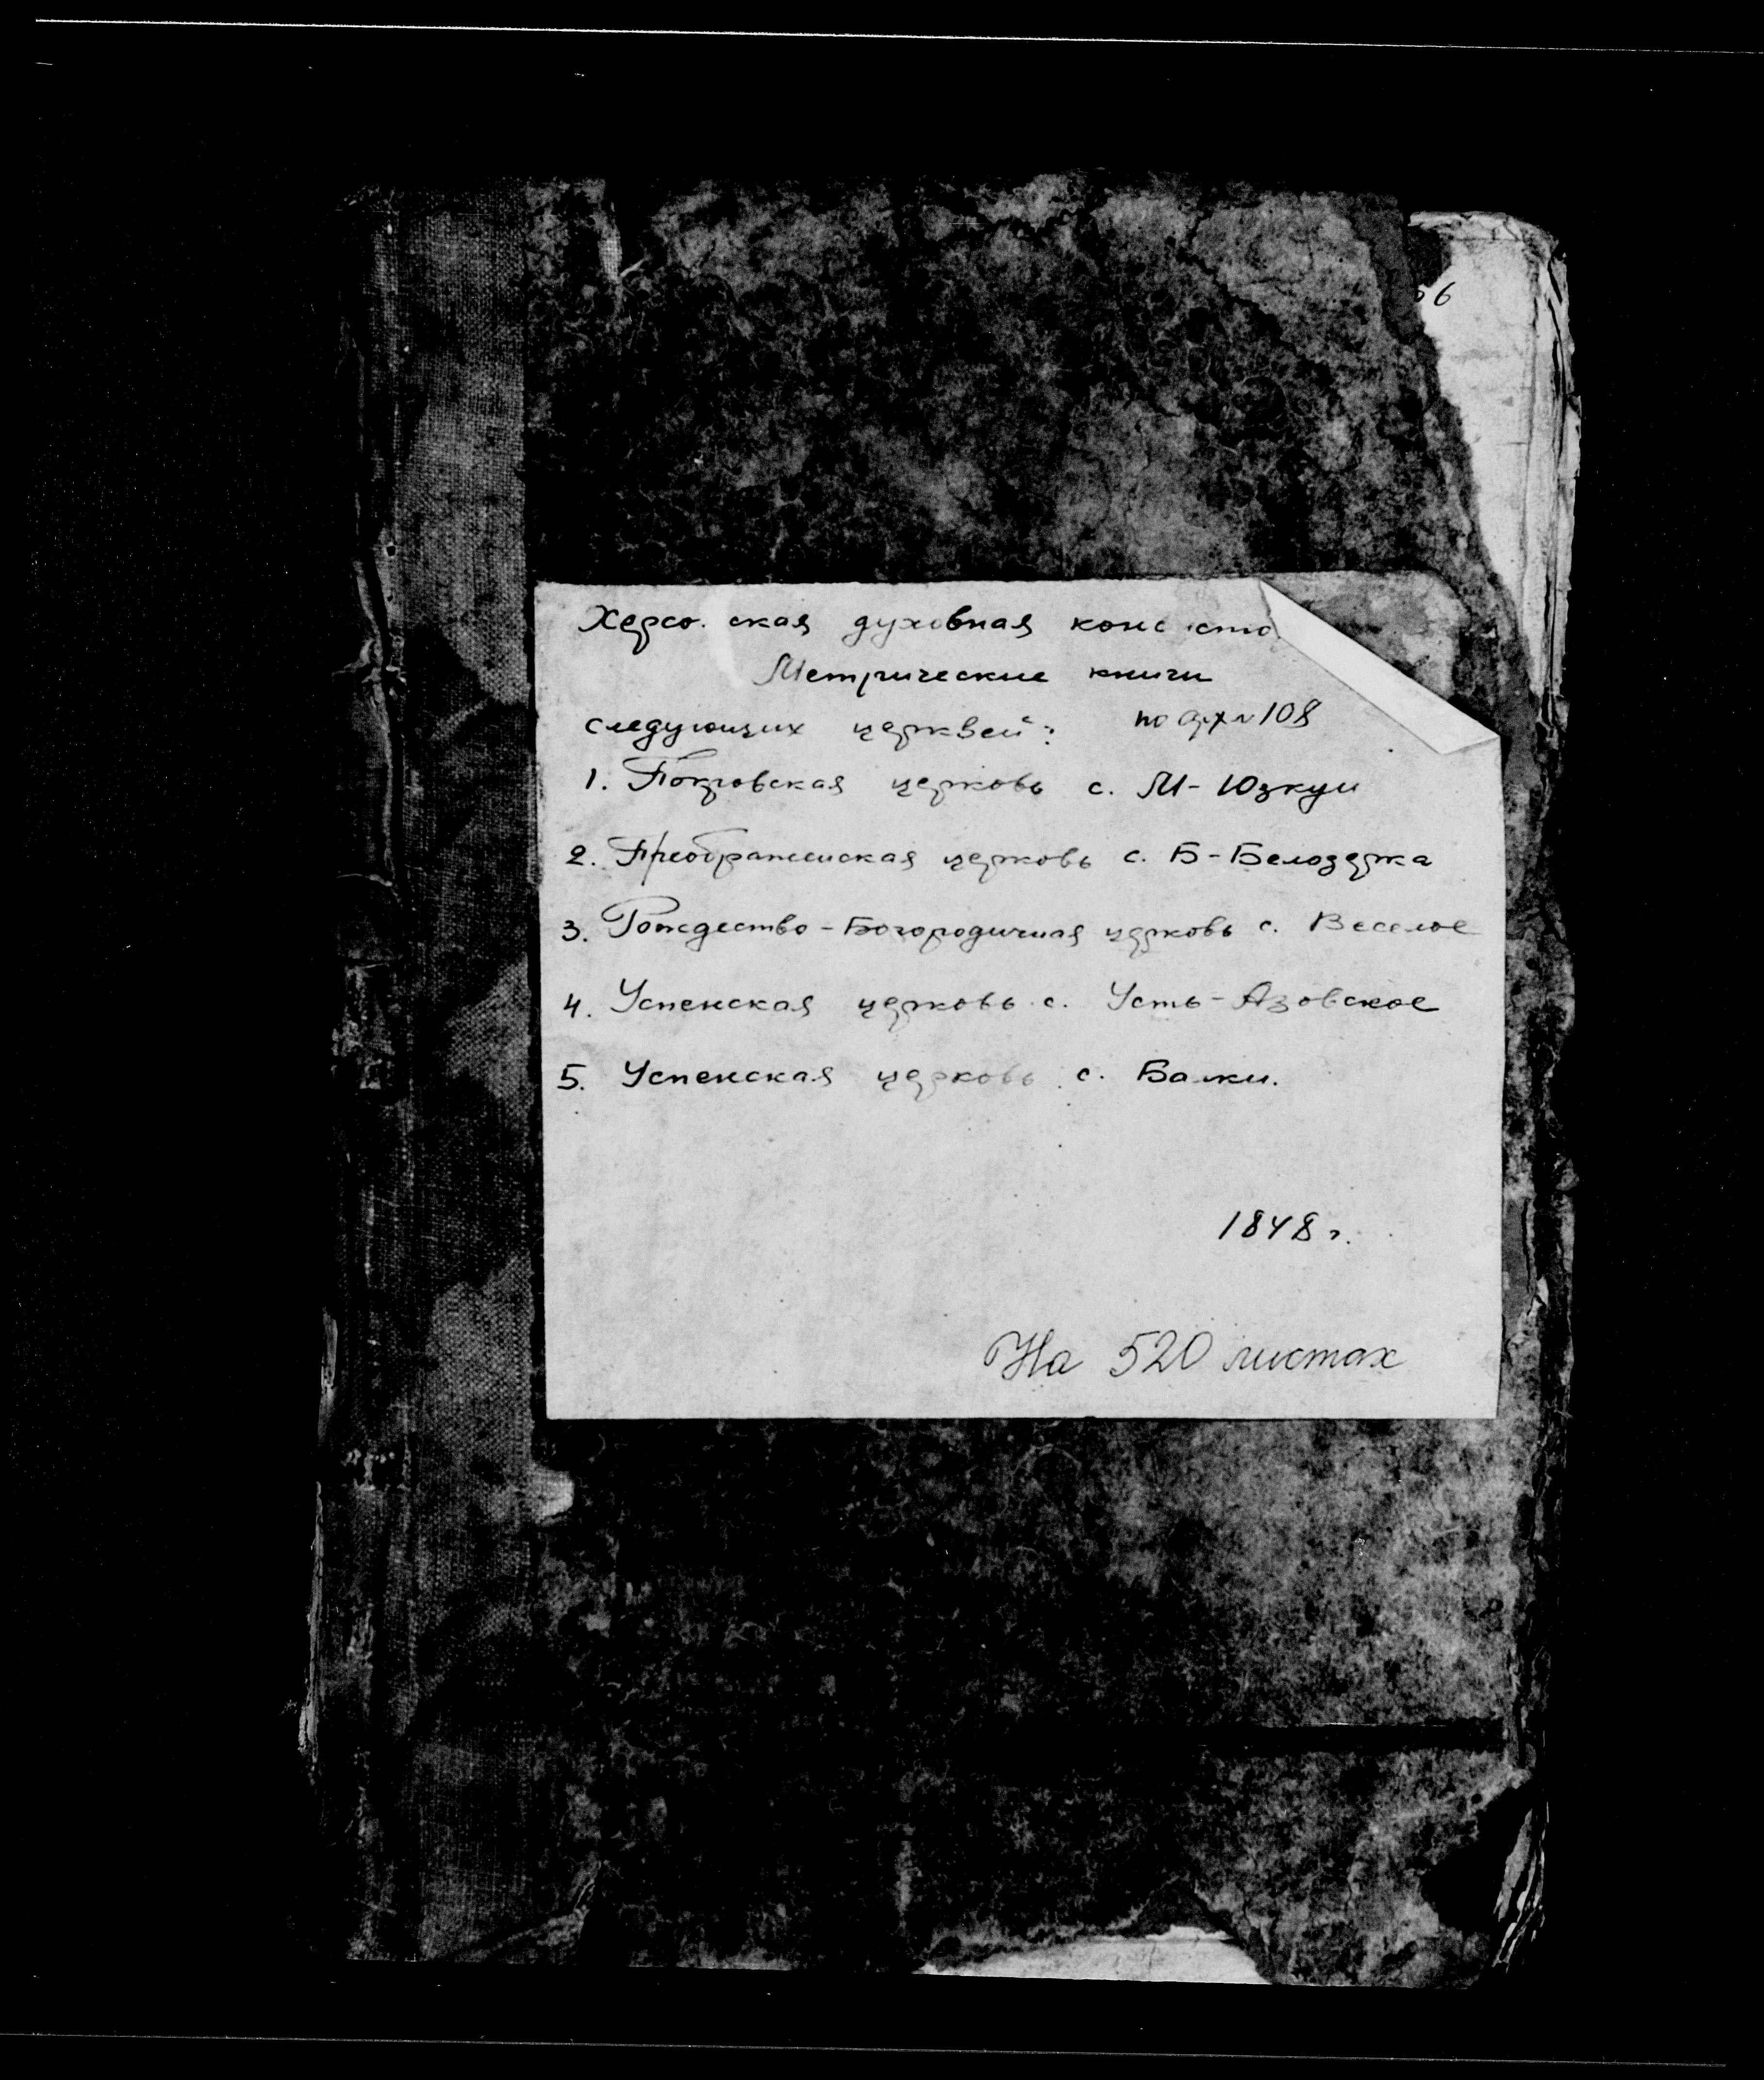 66
Херсо. ская духовная конс исто
Метрические книги
следующих церквей: по арх № 108
1. Покровская церковь с. М-Юзкуи
2. Преображенская церковь с. Б-Белозерка
3. Рождество-Богородичная церковь с. Веселое
4. Успенская церковь с. Усть-Азовское
5. Успенская церковь с. Балки.
1848 г.
На 520 листах